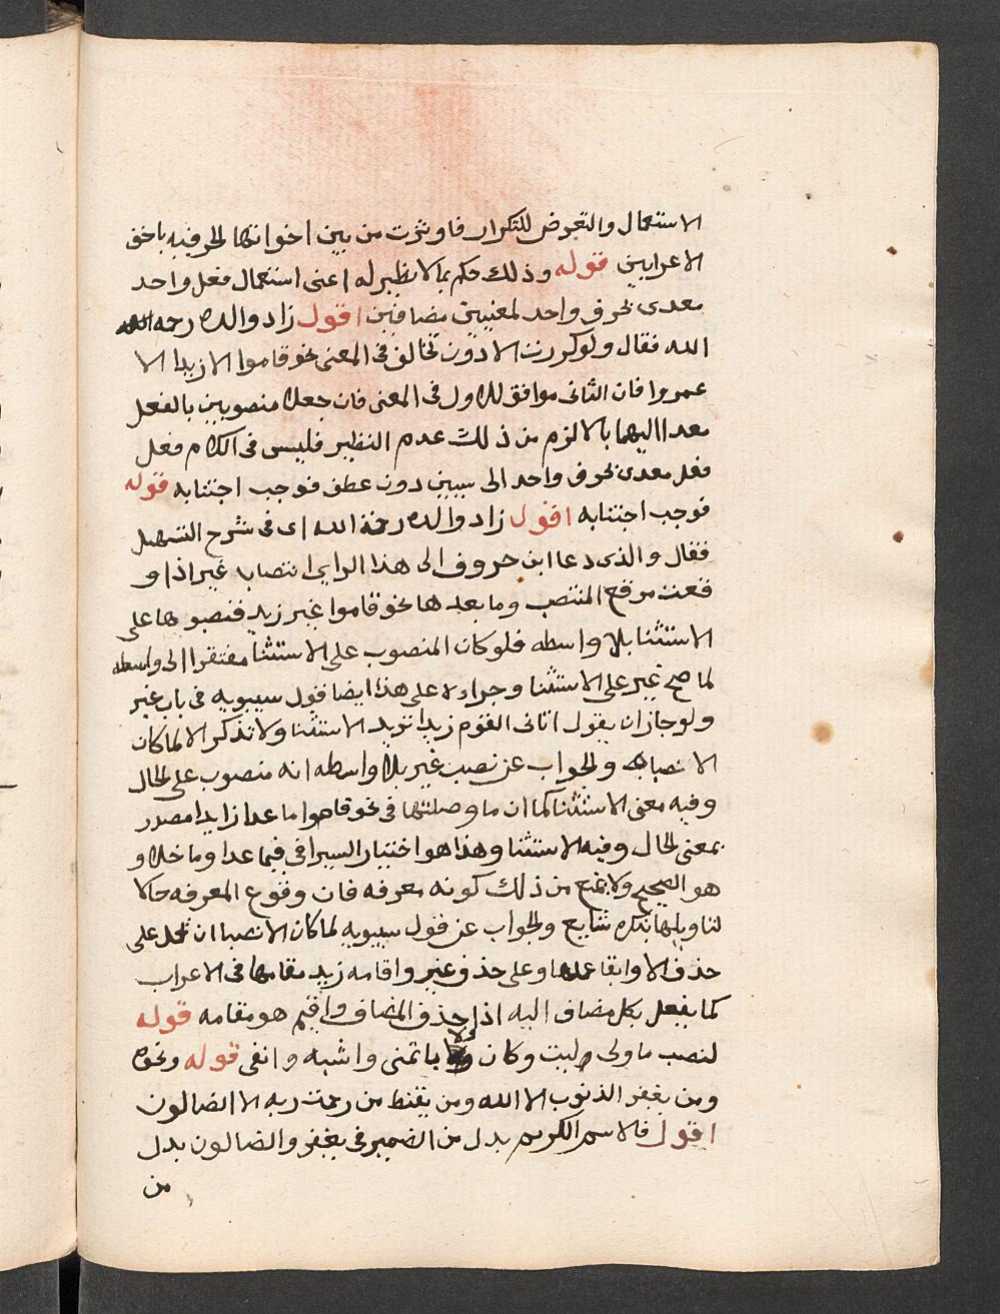 الاستعمال والتعرض للتكرار فاوثرت من بين اخواتها لحرفيه باخف
الاعرابين قوله وذلك حكم بما لا نظير له اعنى استعمال فعل واحد
معدى بحرف واحد لمعنيين مضافين اقول زاد والده رحمه الله
الله فقال ولو كررت الا دون تخالف فى المعنى نحو قاموا الا زيدا الا
عمروا فان الثانى موافق للاول فى المعنى فان جعلا منصوبين بالفعل
معدا اليهما بالا لزم من ذلك عدم النظير فليس فى الكلام فعل
فعل معدى بحرف واحد الى سببين دون عطف فوجب اجتنابه قوله
فوجب اجتنابه اقول زاد والده رحمة الله اى فى شرح التسهيل
فقال والذى دعا ابن خروف الى هذا الراى انتصاب غير اذا و
قعت موقع المنتصب وما بعدها نحو قاموا غير زيد فنصبوها على
الاستثنا بلا واسطه فلو كان المنصوب على الاستثنا مفتقرا الى واسطه
لما صح غير على الاستثنا وجراءه على هذا ايضا قول سيبويه فى باب غير
ولو جاز ان يقول اتانى القوم زيدا تريد الاستثنا ولا تذكر الا لما كان
الا نصبا والجواب عن نصب غير بلا واسطه انه منصوب على الحال
وفيه معنى الاستثنا كما ان ما وصلتها فى نحو قاموا ما عدا زايدا مصدر
بمعنى الحال وفيه الاستثنا وهذا هو اختيار السيرافى فيما عدا وما خلا و
هو الصحيح ولا يمنع من ذلك كونه معرفه فان وقوع المعرفه حالا
لتاويلها بنكره شايع والجواب عن قول سيبويه لما كان الا نصبا ان تحمل على
حذف الا وابقا عملها وعلى حذف غير واقامه زيد مقامها فى الاعراب
كما يفعل بكل مضاف اليه اذا حذف المضاف واقيم هو مقامه قوله
لنصب ما ولى ليت وكان ولا باتمنى واشبه وانفى قوله ونحو
ومن يغفر الذنوب الا الله ومن يقنط من رحمت ربه الا الضالون
اقول فالاسم الكريم بدل من الضمير فى يغفر والضالون بدل
من